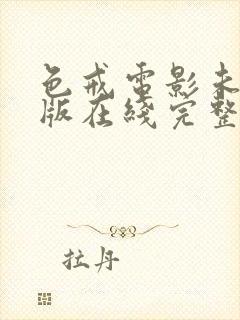 色戒電影未
版在綫完整
拉丹